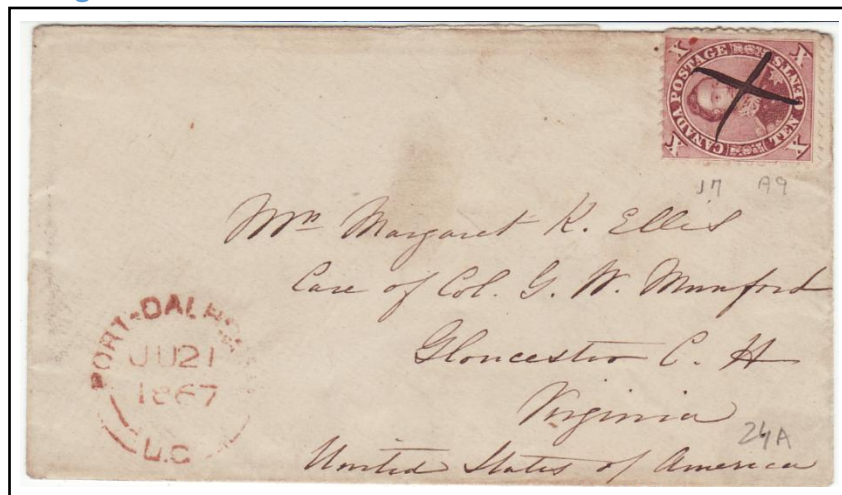 CANADA POSTAGE TEN CENTS
X X X X
17 A9
Mrs Margaret K. Ellis
Care of Col. G. W. Munford
Gloucester C. H
Virginia
24A
United States of America
PORT-DALHOU
JU 21
1867
U.C